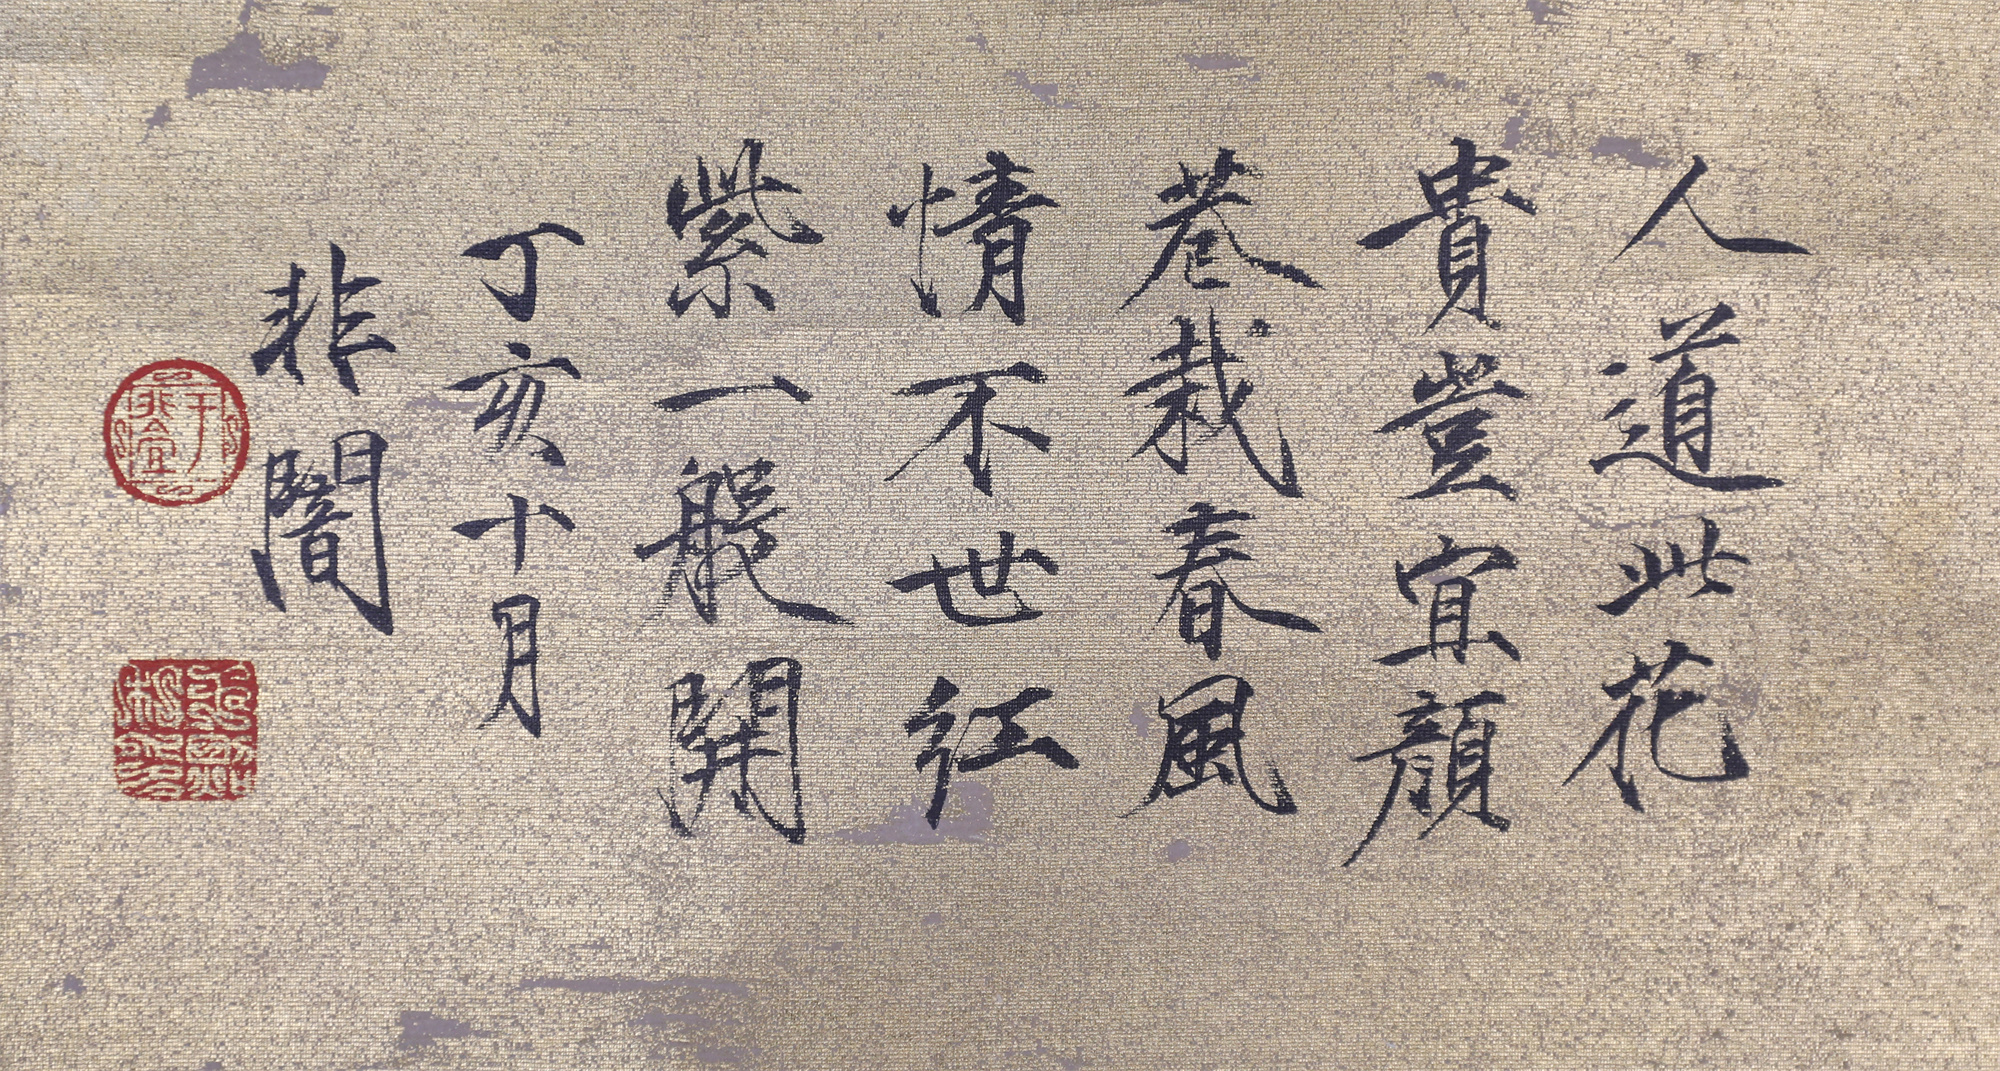 人道此花
貴豈宜顔
巷栽春風
情不世紅
紫一般開
丁亥十月
非闇